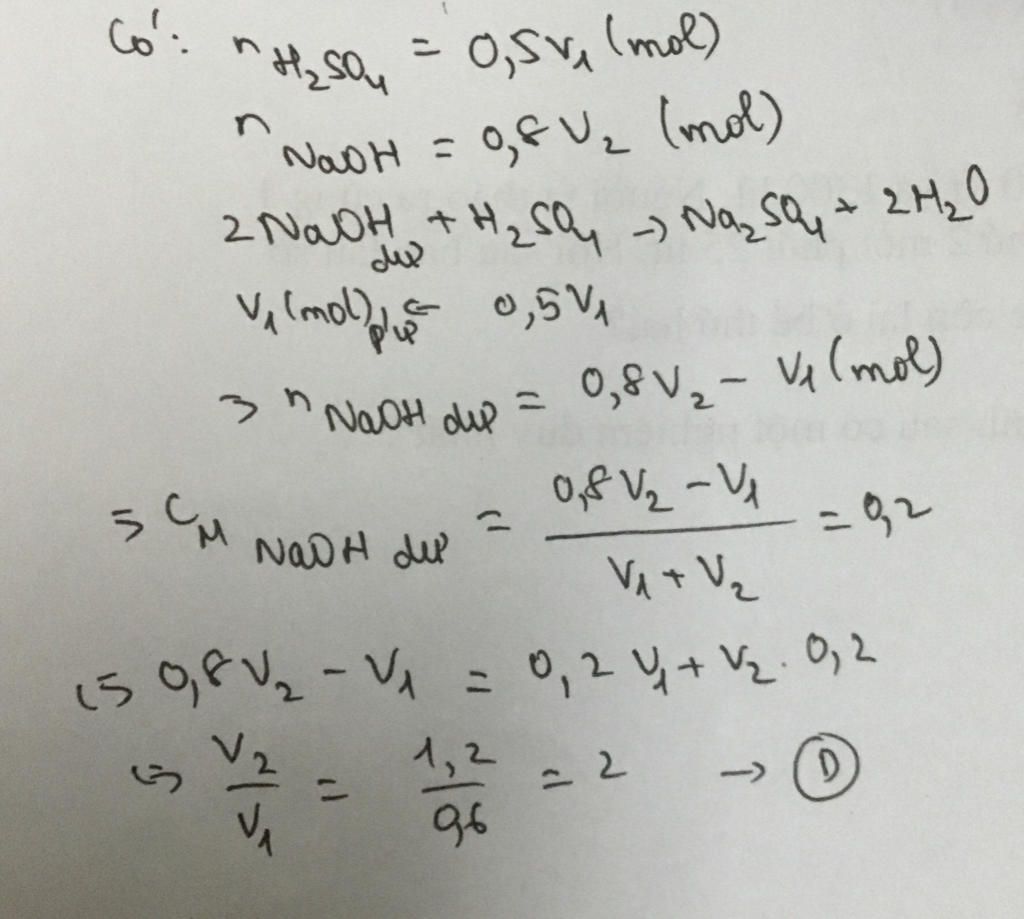 Có: n H₂SO₄ = 0,5V₁ (mol)
n NaOH = 0,8V₂ (mol)
2NaOH dư + H₂SO₄ → Na₂SO₄ + 2H₂O
V₁ (mol) pư ← 0,5V₁
⇒ n NaOH dư = 0,8V₂ - V₁ (mol)
⇒ C M NaOH dư = (0,8V₂ - V₁)/(V₁ + V₂) = 0,2
⇔ 0,8V₂ - V₁ = 0,2V₁ + V₂.0,2
⇔ V₂/V₁ = 1,2/0,6 = 2 → D